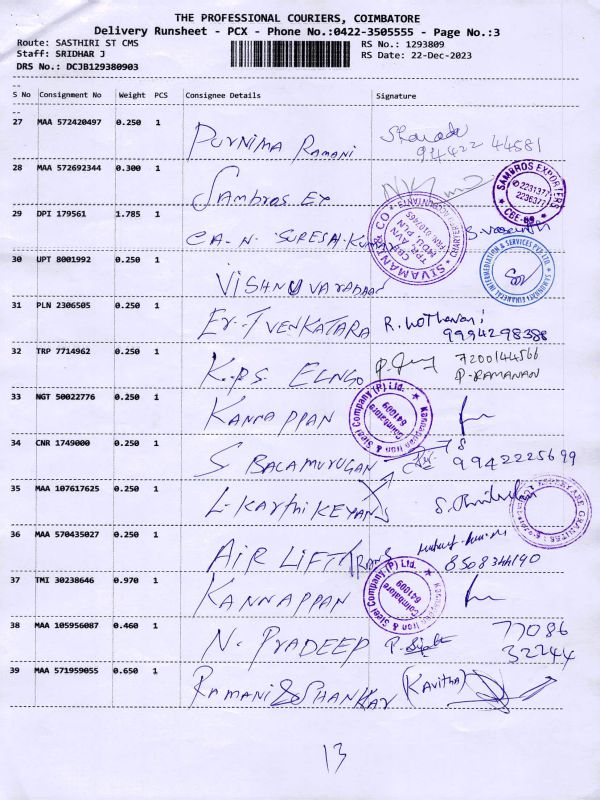 THE PROFESSIONAL COURIERS, COIMBATORE
Delivery Runsheet - PCX - Phone No.:0422-3505555 - Page No.:3
Route: SASTHIRI ST CMS
Staff: SRIDHAR J
DRS No.: DCJB129380903
RS No.: 1293809
RS Date: 22-Dec-2023
S No Consignment No Weight PCS Consignee Details Signature
27 MAA 572420497 0.250 1 PURNIMA RAMANI
94422 44581
28 MAA 572692344 0.300 1 Sambros Ex
SAMBROS EXPORTERS
2231377
2236377
CBE-
29 DPI 179561 1.785 1 CA-N. SURESH-KUMAR
SIVAMANI & CO
CHARTERED ACCOUNTANTS
30 UPT 8001992 0.250 1 VISHNUVARADAAN
31 PLN 2306505 0.250 1 Er.-T VENKATARA R. 9994298388
32 TRP 7714962 0.250 1 K.P.S. ELNGO 7200144566
P. RAMANAN
33 NGT 50022776 0.250 1 KANNAPPAN
Kannappan Iron & Steel Company (P) Ltd.
Coimbatore
641009
34 CNR 1749000 0.250 1 S BALAMURUGAN 9942225699
35 MAA 107617625 0.250 1 L. KARTHIKEYANS
36 MAA 570435027 0.250 1 AIR LIFT TRANS
8508344190
37 TMI 30238646 0.970 1 KANNAPPAN
Kannappan Iron & Steel Company (P) Ltd.
Coimbatore
641009
38 MAA 105956087 0.460 1 N. PRADEEP P. 77086
32244
39 MAA 571959055 0.650 1 RAMANI & SHANKAR (Kavitha)
13